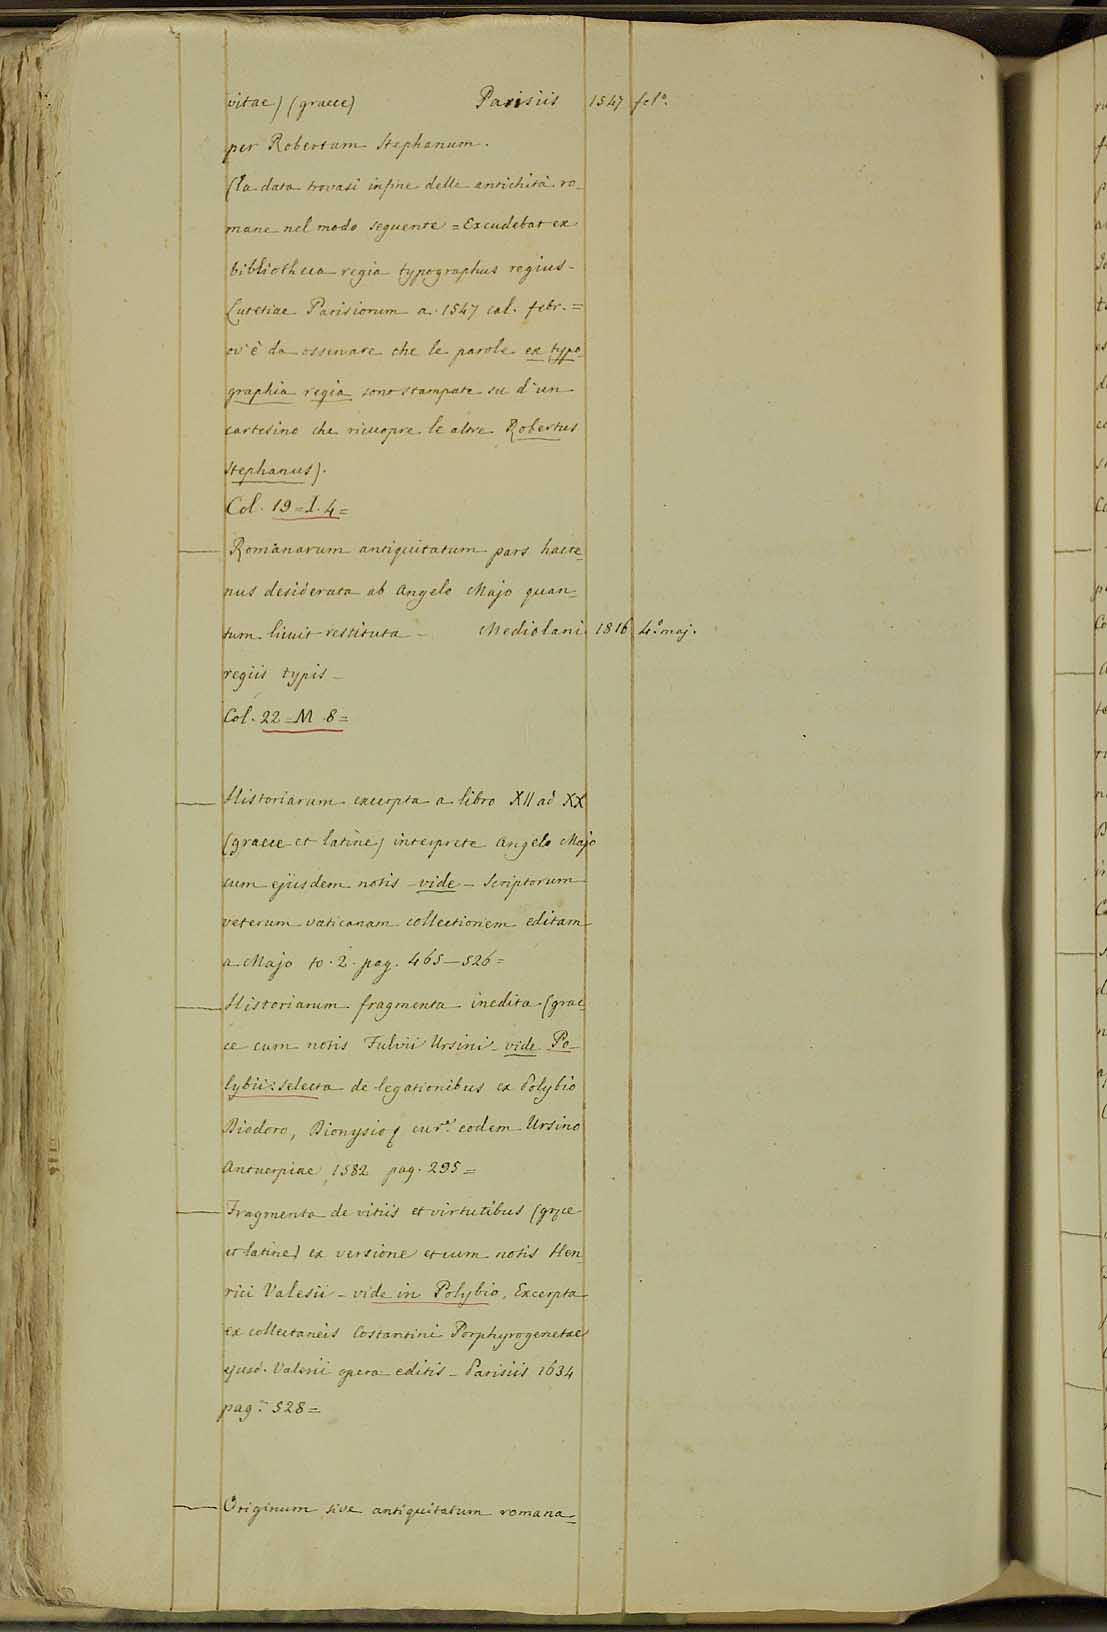 vitae) (graece) Parisiis 1547 fol°.
per Robertum Stephanum.
(la data trovasi infine delle antichità ro-
mane nel modo seguente = Excudebat ex
bibliotheca regia typographus regius -
Lutetiae Parisiorum a. 1547 cal. febr. =
ov'è da osservare che le parole ex typo-
graphia regia sono stampate su d'un
cartesino che ricuopre le altre Robertus
Stephanus).
Col. 19 = l. 4 =
— Romanarum antiquitatum pars hacte-
nus desiderata ab Angelo Majo quan-
tum licuit restituta - Mediolani 1816 4.° maj.
regiis typis -
Col. 22 = M. 8 =
— Historiarum excerpta a libro XII ad XX
(graece et latine) interprete Angelo Majo
cum ejusdem notis - vide - Scriptorum
veterum vaticanam collectionem editam
a Majo to. 2. pag. 465 - 526 =
— Historiarum fragmenta inedita (grae-
ce cum notis Fulvii Ursini - vide Po-
lybii: selecta de legationibus ex Polybio
Diodoro, Dionysio cur.e eodem Ursino
Antuerpiae, 1582 pag. 295 =
— Fragmenta de vitiis et virtutibus (grece
et latine) ex versione et cum notis Hen-
rici Valesii - vide in Polybio. Excerpta
ex collectaneis Costantini Porphyrogenetae
ejusd. Valesii opera editis - Parisiis 1634
pag. 528 =
— Originum sive antiquitatum romana-